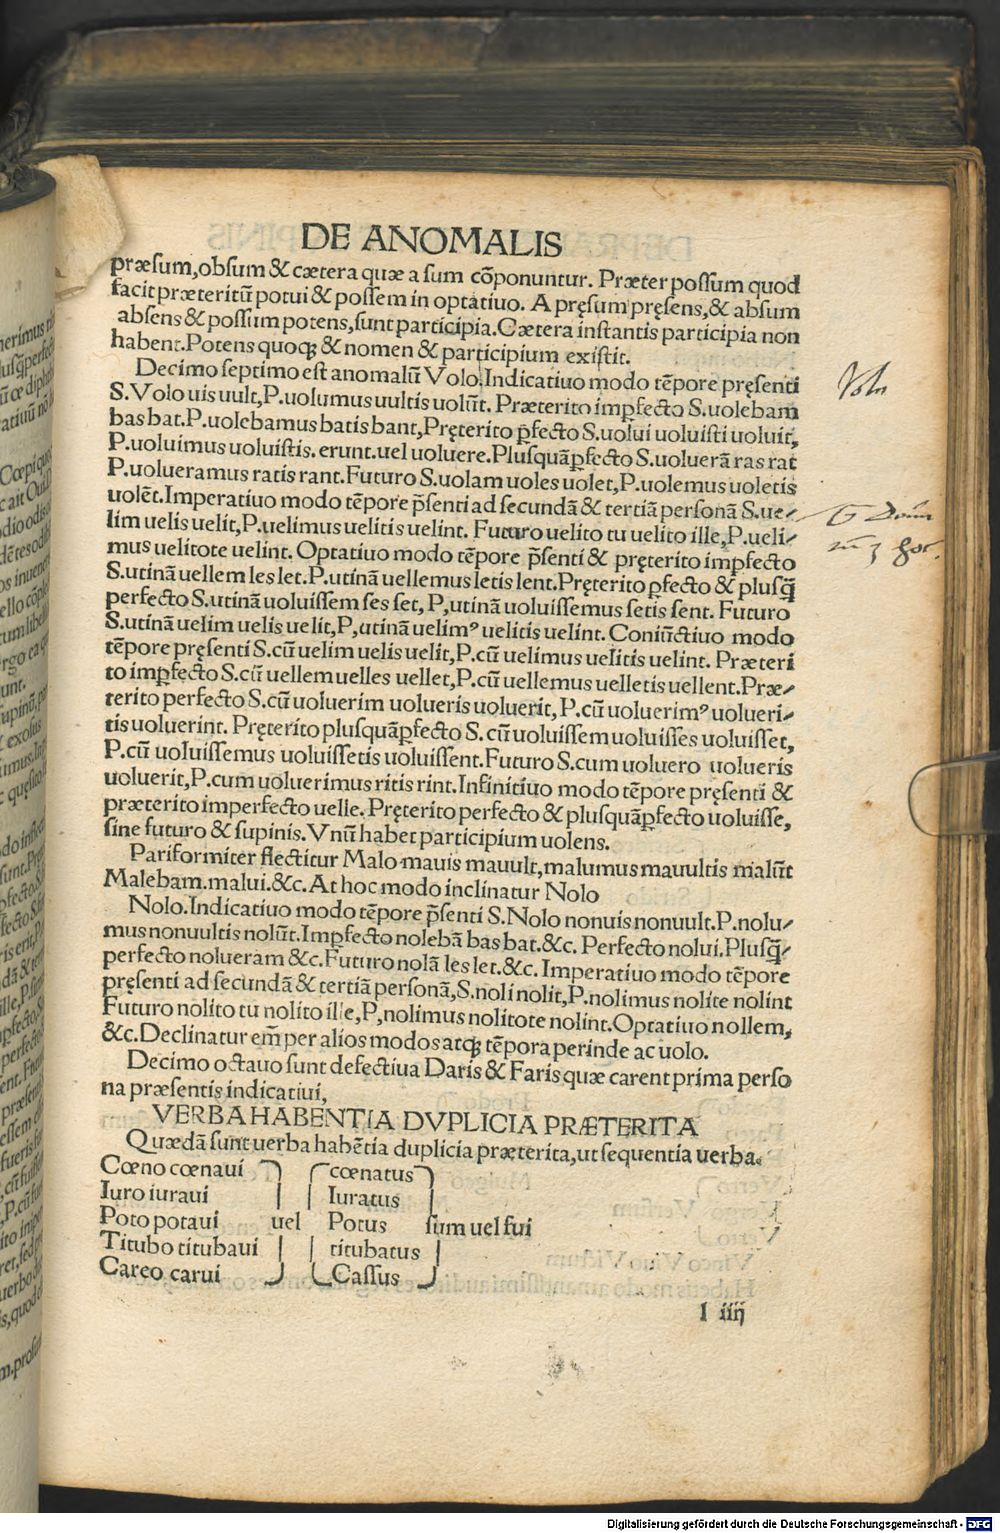 DE ANOMALIS
præsum,obsum & cætera quæ a sum cõponuntur. Præter possum quod
facit præteritũ potui & possem in optatiuo. A pręsum pręsens,& absum
absens & possum potens,sunt participia.Cætera instantis participia non
habent.Potens quoqꝫ & nomen & participium existit.
Decimo septimo est anomalũ Volo.Indicatiuo modo tẽpore pręsenti
S.Volo uis uult,P.uolumus uultis uolũt. Præterito imꝑfecto S.uolebam
bas bat.P.uolebamus batis bant,Pręterito ꝑfecto S.uolui uoluisti uoluit,
P.uoluimus uoluistis.erunt.uel uoluere.Plusquãꝑfecto S.uoluerã ras rat
P.uolueramus ratis rant.Futuro S.uolam uoles uolet,P.uolemus uoletis
uolẽt.Imperatiuo modo tẽpore p̃senti ad secundã & tertiã personã S.ue⸗
lim uelis uelit,P.uelimus uelitis uelint. Futuro uelito tu uelito ille,P.ueli⸗
mus uelitote uelint. Optatiuo modo tẽpore p̃senti & pręterito imꝑfecto
S.utinã uellem les let.P.utinã uellemus letis lent.Pręterito ꝑfecto & plusq̃
perfecto S.utinã uoluissem ses set, P,utinã uoluissemus setis sent. Futuro
S.utinã uelim uelis uelit,P,utinã uelimꝰ uelitis uelint. Coniũctiuo modo
tẽpore pręsenti S.cũ uelim uelis uelit,P.cũ uelimus uelitis uelint. Præteri
to imꝑfecto S.cũ uellem uelles uellet,P.cũ uellemus uelletis uellent.Præ⸗
terito perfecto S.cũ uoluerim uolueris uoluerit, P.cũ uoluerimꝰ uolueri⸗
tis uoluerint. Pręterito plusquãꝑfecto S. cũ uoluissem uoluisses uoluisset,
P.cũ uoluissemus uoluissetis uoluissent.Futuro S.cum uoluero uolueris
uoluerit,P.cum uoluerimus ritis rint.Infinitiuo modo tẽpore pręsenti &
præterito imperfecto uelle. Pręterito perfecto & plusquãꝑfecto uoluisse,
sine futuro & supinis. Vnũ habet participium uolens.
Pariformiter flectitur Malo mauis mauult,malumus mauultis malũt
Malebam.malui.&c. At hoc modo inclinatur Nolo
Nolo.Indicatiuo modo tẽpore p̃senti S.Nolo nonuis nonuult.P.nolu⸗
mus nonuultis nolũt.Imꝑfecto nolebã bas bat.&c. Perfecto nolui.Plusq̃⸗
perfecto nolueram &c.Futuro nolã les let.&c. Imperatiuo modo tẽpore
pręsenti ad secundã & tertiã personã,S.noli nolit,P.nolimus nolite nolint
Futuro nolito tu nolito ille,P,nolimus nolitote nolint.Optatiuo nollem,
&c.Declinatur em̃ per alios modos atqꝫ tẽpora perinde ac uolo.
Decimo octauo sunt defectiua Daris & Faris quæ carent prima perso
na præsentis indicatiui,
VERBA HABENTIA DVPLICIA PRÆTERITA
Quædã sunt uerba habẽtia duplicia præterita,ut sequentia uerba.
Cœno cœnaui cœnatus
Iuro iuraui Iuratus
Poto potaui uel Potus sum uel fui
Titubo titubaui titubatus
Careo carui Cassus
I iiij
Volo
Digitalisierung gefördert durch die Deutsche Forschungsgemeinschaft - DFG